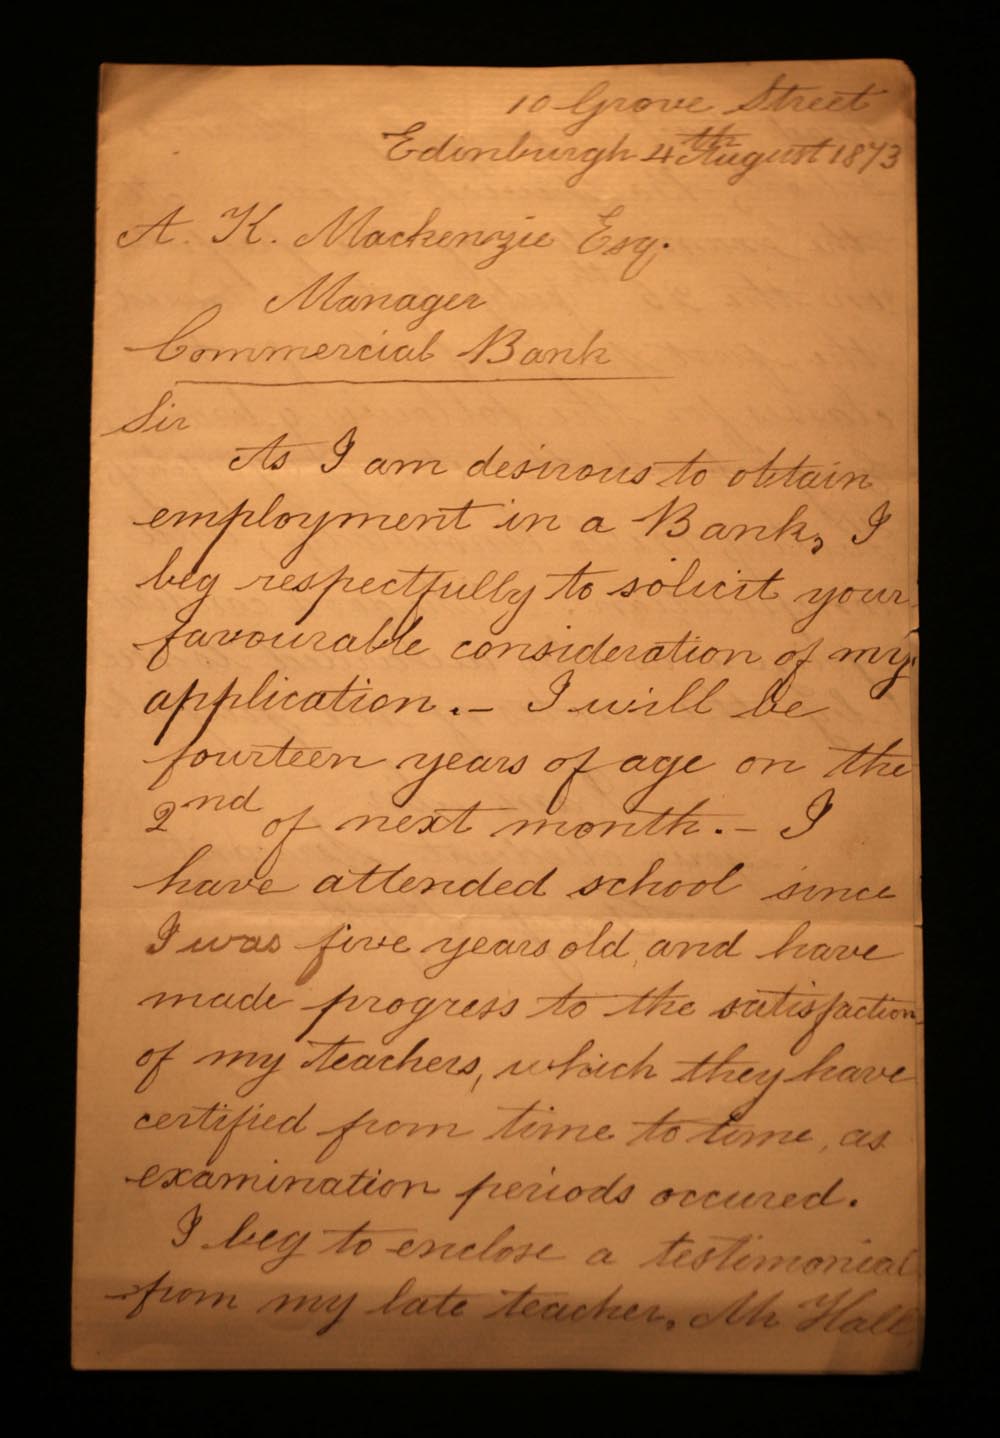 10 Grove Street
Edinburgh 4th August 1873
A. K. Mackenzie Esq.
Manager
Commercial Bank
Sir
As I am desirous to obtain
employment in a Bank, I
beg respectfully to solicit your
favourable consideration of my
application. - I will be
fourteen years of age on the
2nd of next month. - I
have attended school since
I was five years old, and have
made progress to the satisfaction
of my teachers, which they have
certified from time to time, as
examination periods occured.
I beg to enclose a testimonial
from my late teacher, Mr Hall